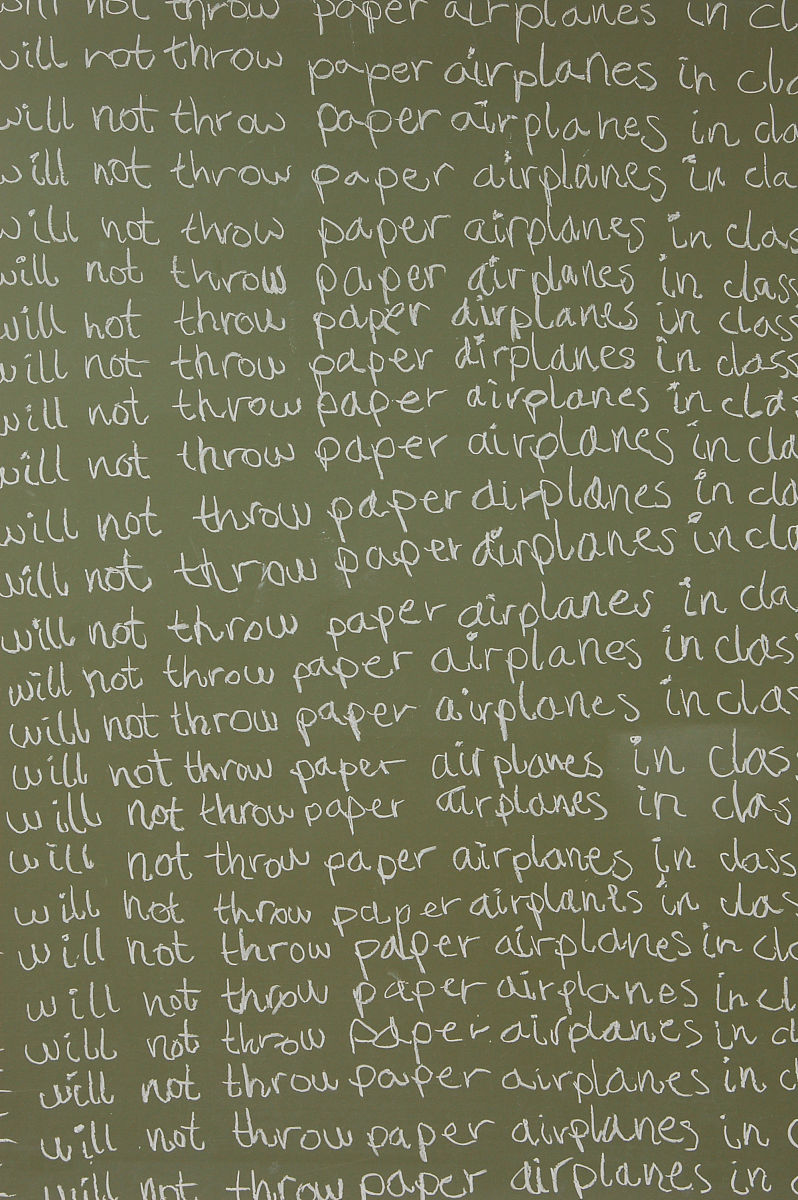 will not throw paper airplanes in cl
will not throw paper airplanes in cla
will not throw paper airplanes in cla
will not throw paper airplanes in cla
will not throw paper airplanes in clas
will not throw paper airplanes in class
will not throw paper airplanes in class
will not throw paper airplanes in class
will not throw paper airplanes in clas
will not throw paper airplanes in cla
will not throw paper airplanes in cla
will not throw paper airplanes in cla
will not throw paper airplanes in cla
will not throw paper airplanes in class
will not throw paper airplanes in clas
will not throw paper airplanes in clas
will not throw paper airplanes in clas
will not throw paper airplanes in class
will not throw paper airplanes in clas
will not throw paper airplanes in cla
will not throw paper airplanes in cl
will not throw paper airplanes in c
will not throw paper airplanes in c
will not throw paper airplanes in c
will not throw paper airplanes in c